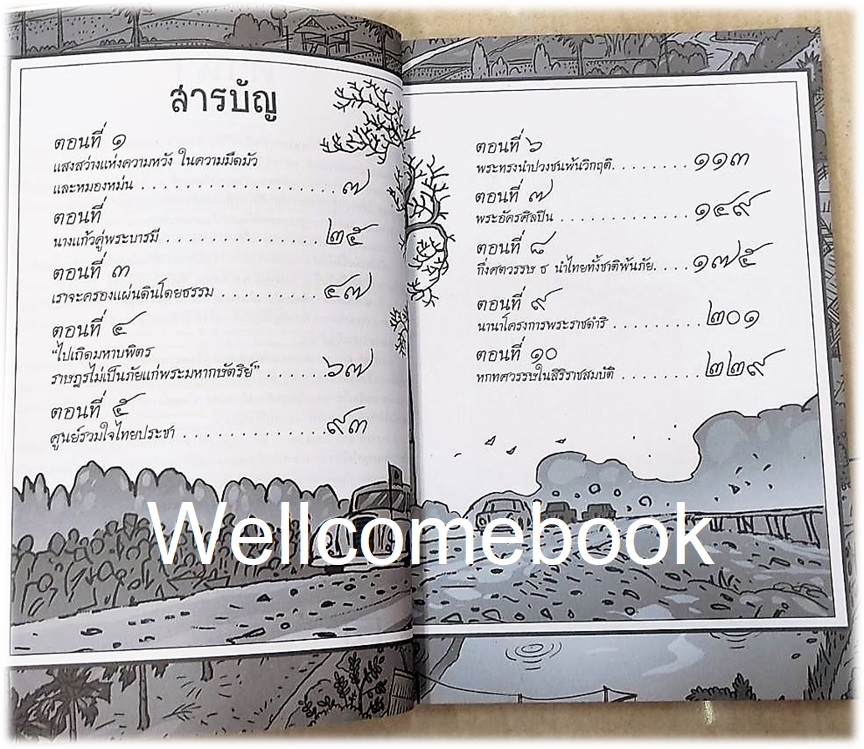 สารบัญ
ตอนที่ ๑
แสงสว่างแห่งความหวัง ในความมืดมัว
และหมองหม่น . . . . . . . . . . . . . . . . . . . . ๗
ตอนที่
นางแก้วคู่พระบารมี . . . . . . . . . . . . . . . . . ๒๕
ตอนที่ ๓
เราจะครองแผ่นดินโดยธรรม . . . . . . . . . . . ๔๗
ตอนที่ ๔
"ไปเถิดมหาบพิตร
ราษฎรไม่เป็นภัยแก่พระมหากษัตริย์" . . . . . . ๖๗
ตอนที่ ๕
ศูนย์รวมใจไทยประชา . . . . . . . . . . . . . . . ๙๓
ตอนที่ ๖
พระทรงนำปวงชนพ้นวิกฤติ. . . . . . . . . ๑๑๓
ตอนที่ ๗
พระอัครศิลปิน . . . . . . . . . . . . . . . . . ๑๔๙
ตอนที่ ๘
กึ่งศตวรรษ ธ นำไทยทั้งชาติพ้นภัย. . . . . ๑๗๕
ตอนที่ ๙
นานาโครงการพระราชดำริ . . . . . . . . . . ๒๐๑
ตอนที่ ๑๐
หกทศวรรษในสิริราชสมบัติ . . . . . . . . . ๒๒๙
Wellcomebook